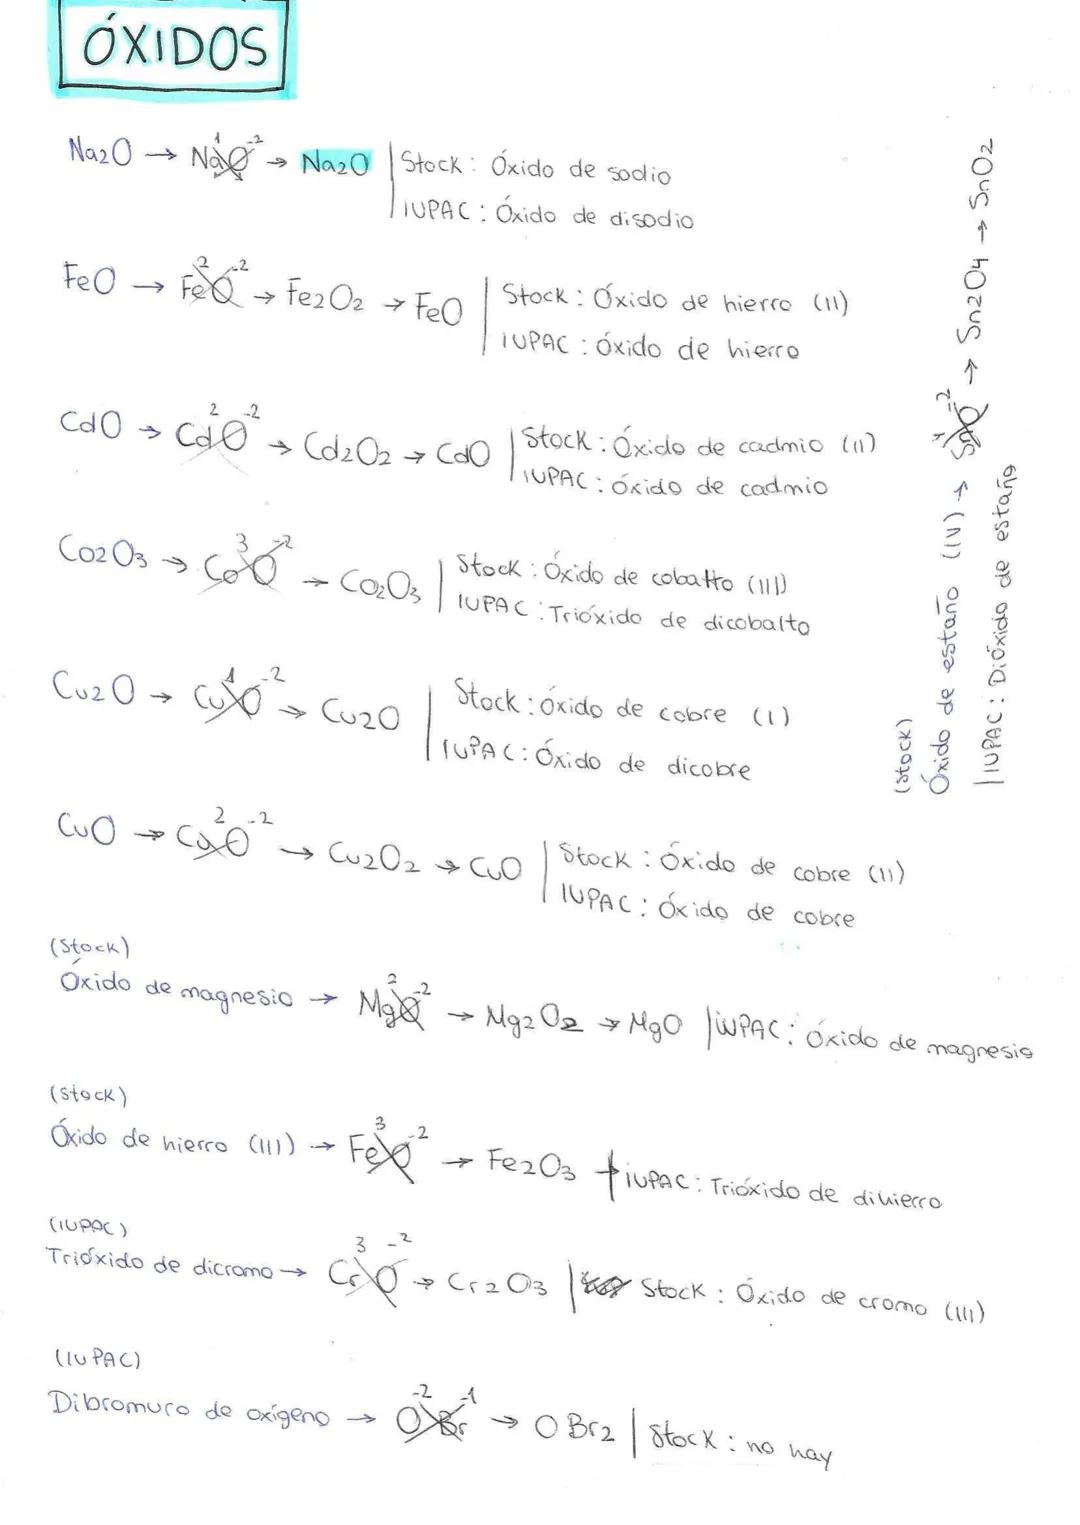 ÓXIDOS
Na2O → Na¹O⁻² → Na2O | Stock: Óxido de sodio
IUPAC: Óxido de disodio
FeO → Fe²O⁻² → Fe2O2 → FeO | Stock: Óxido de hierro (II)
IUPAC: óxido de hierro
CdO → Cd²O⁻² → Cd2O2 → CdO | Stock: Óxido de cadmio (II)
IUPAC: óxido de cadmio
Co2O3 → Co³O⁻² → Co2O3 | Stock: Óxido de cobalto (III)
IUPAC: Trióxido de dicobalto
Cu2O → Cu¹O⁻² → Cu2O | Stock: óxido de cobre (I)
IUPAC: Óxido de dicobre
CuO → Cu²O⁻² → Cu2O2 → CuO | Stock: Óxido de cobre (II)
IUPAC: Óxido de cobre
(Stock)
Óxido de magnesio → Mg²O⁻² → Mg2O2 → MgO | IUPAC: óxido de magnesio
(Stock)
Óxido de hierro (III) → Fe³O⁻² → Fe2O3 | IUPAC: Trióxido de dihierro
(IUPAC)
Trióxido de dicromo → Cr³O⁻² → Cr2O3 | Stock: Óxido de cromo (III)
(IUPAC)
Dibromuro de oxígeno → O⁻²Br⁻¹ → OBr2 | Stock: no hay
(Stock)
Óxido de estaño (IV) → Sn⁴O⁻² → Sn2O4 → SnO2
| IUPAC: Dióxido de estaño